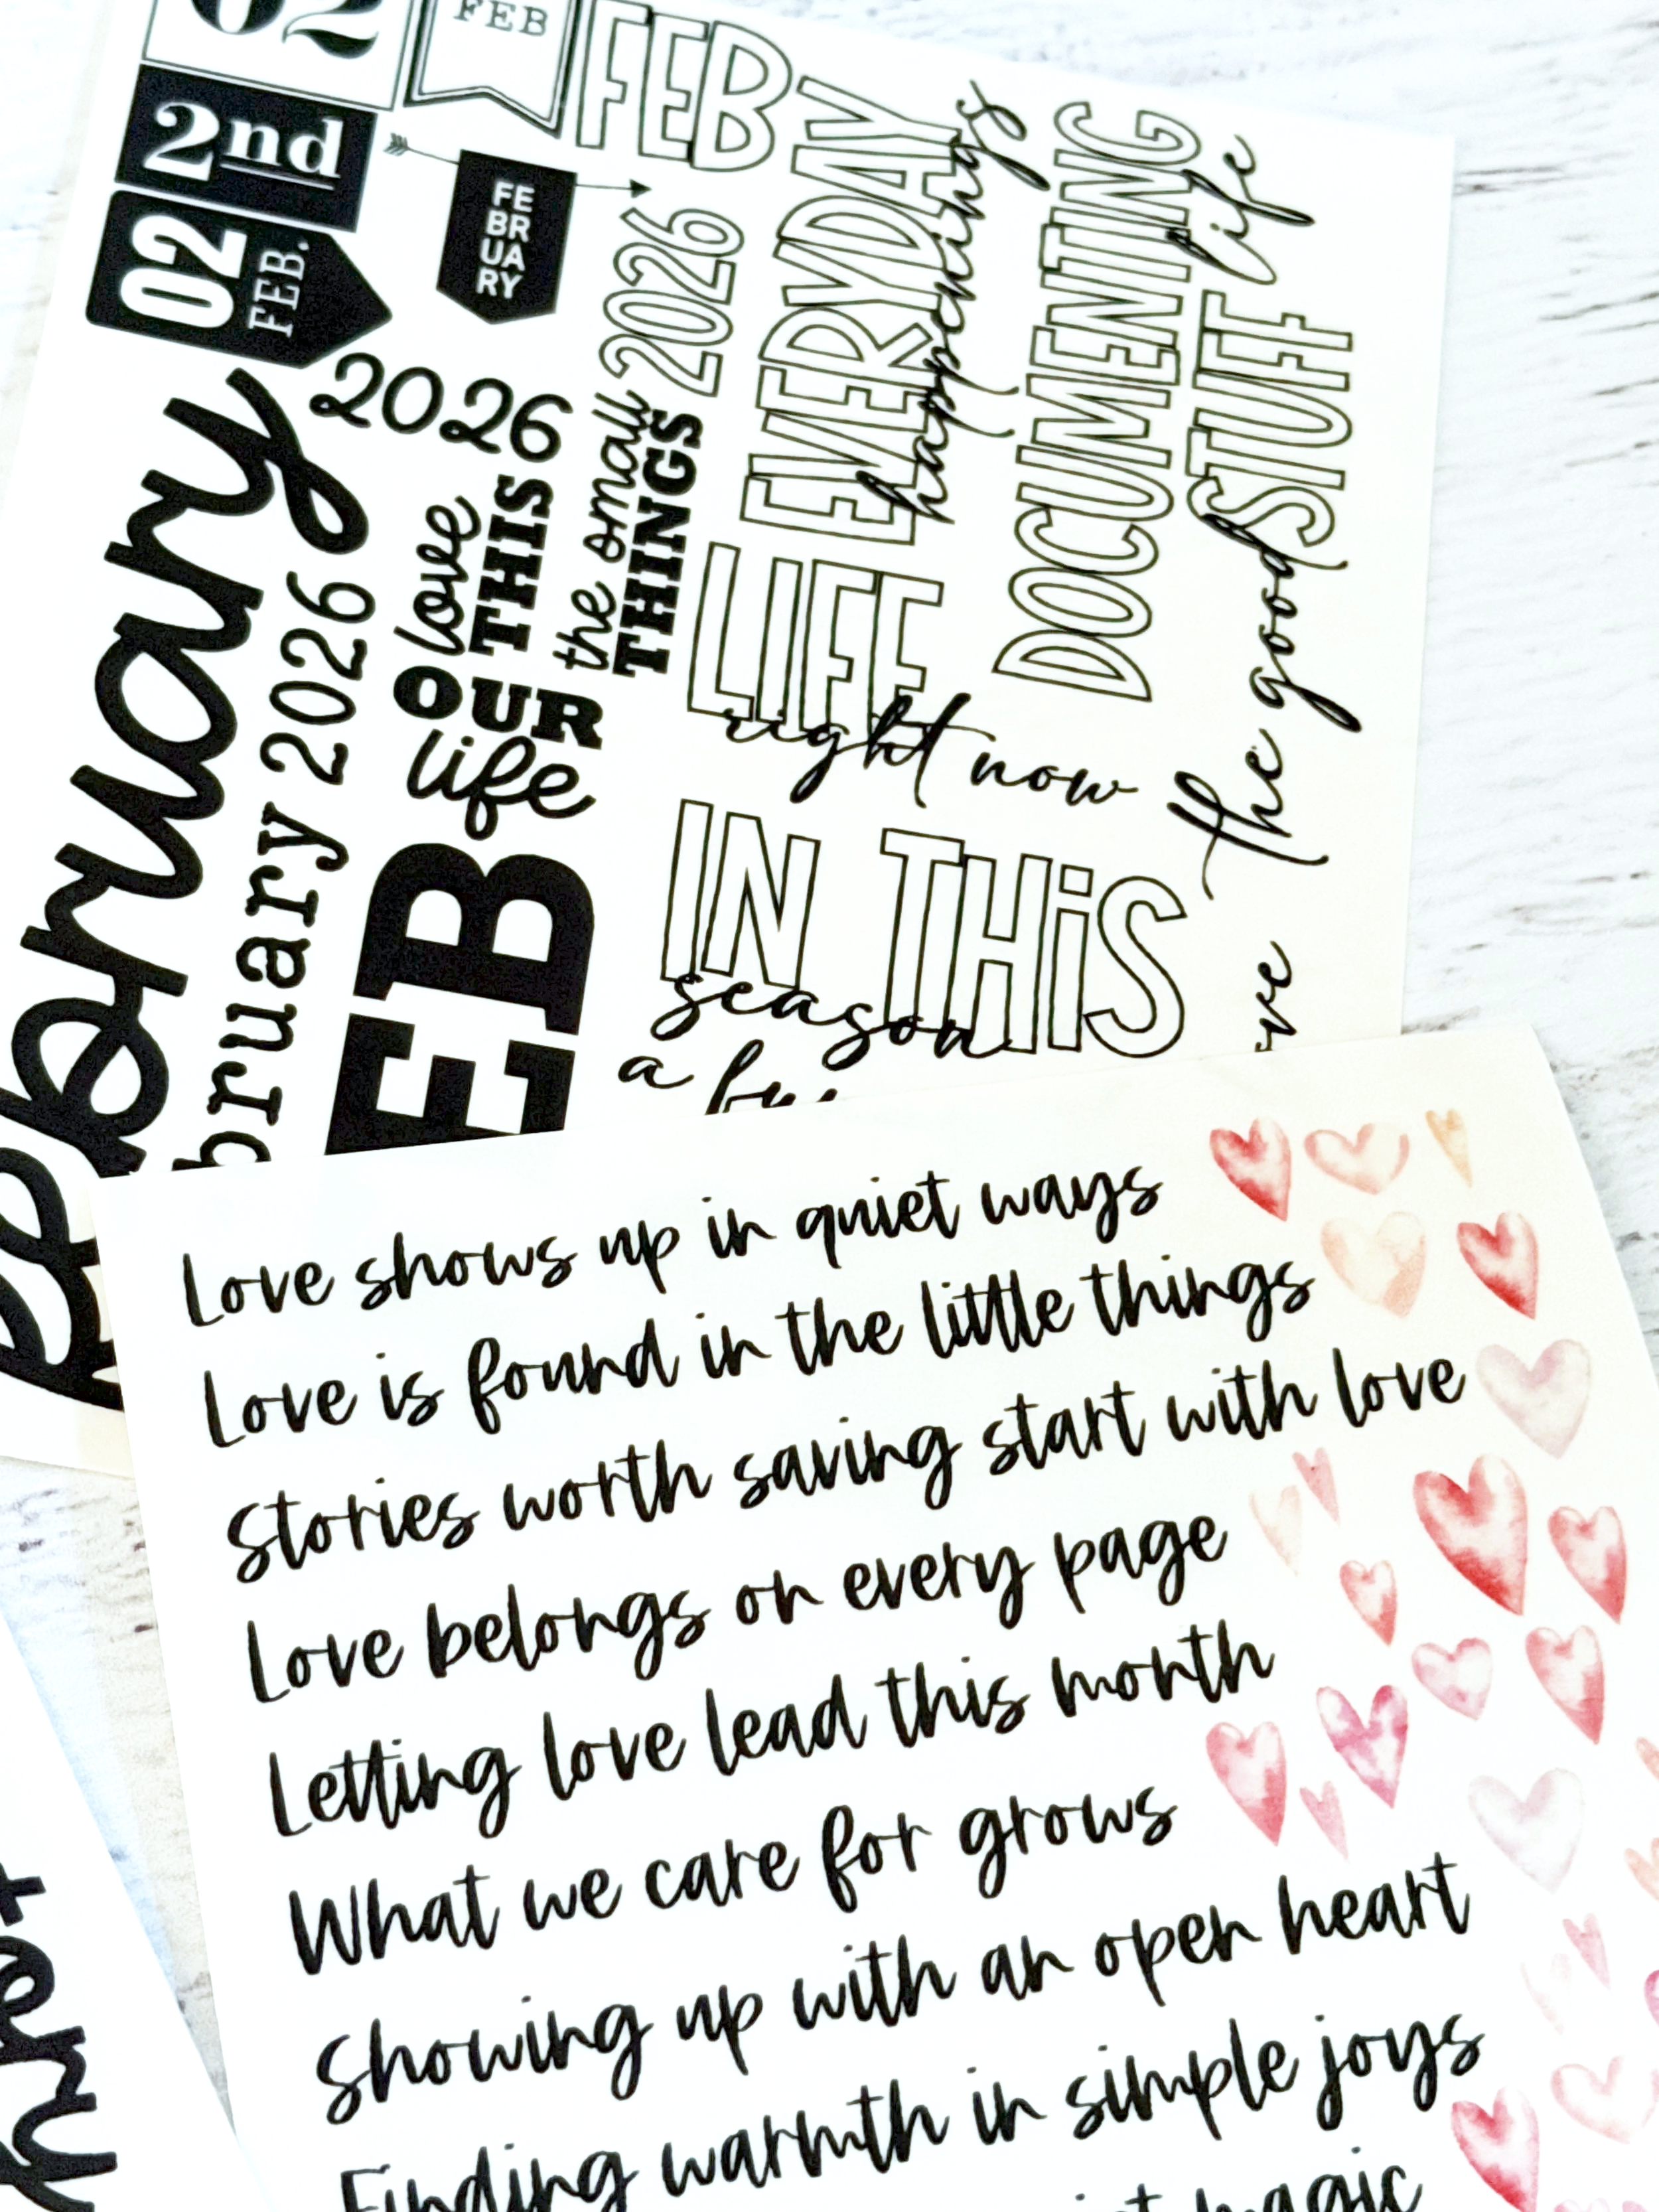 02
FEB
2nd
02
FEB.
FE
BR
UA
RY
FEB
2026
February
bruary 2026
2026
love
THIS
OUR
life
the small
THINGS
EB
EVERYDAY
happenings
DOCUMENTING
life
LIFE
right now
the good
STUFF
IN THiS
season
a
Love shows up in quiet ways
Love is found in the little things
Stories worth saving start with love
Love belongs on every page
Letting love lead this month
What we care for grows
Showing up with an open heart
Finding warmth in simple joys
magic